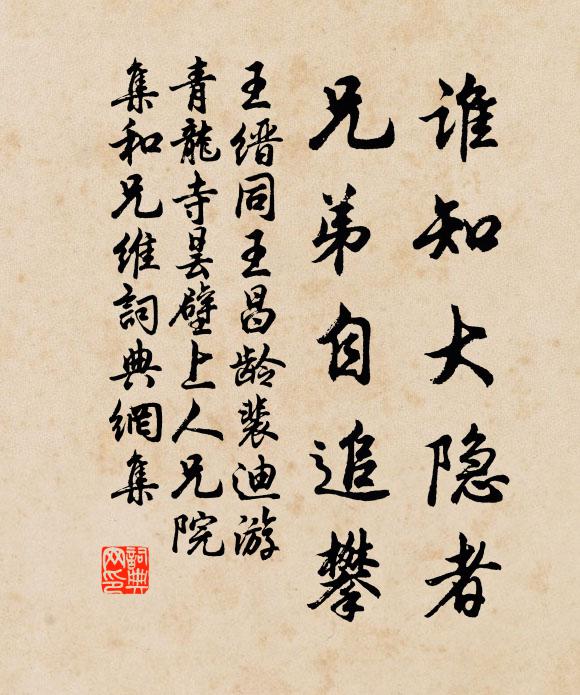 谁知大隐者
兄弟自追攀
王缙同王昌龄裴迪游
青龍寺昙壁上人兄院
集和兄维詞典網集
詞典网印